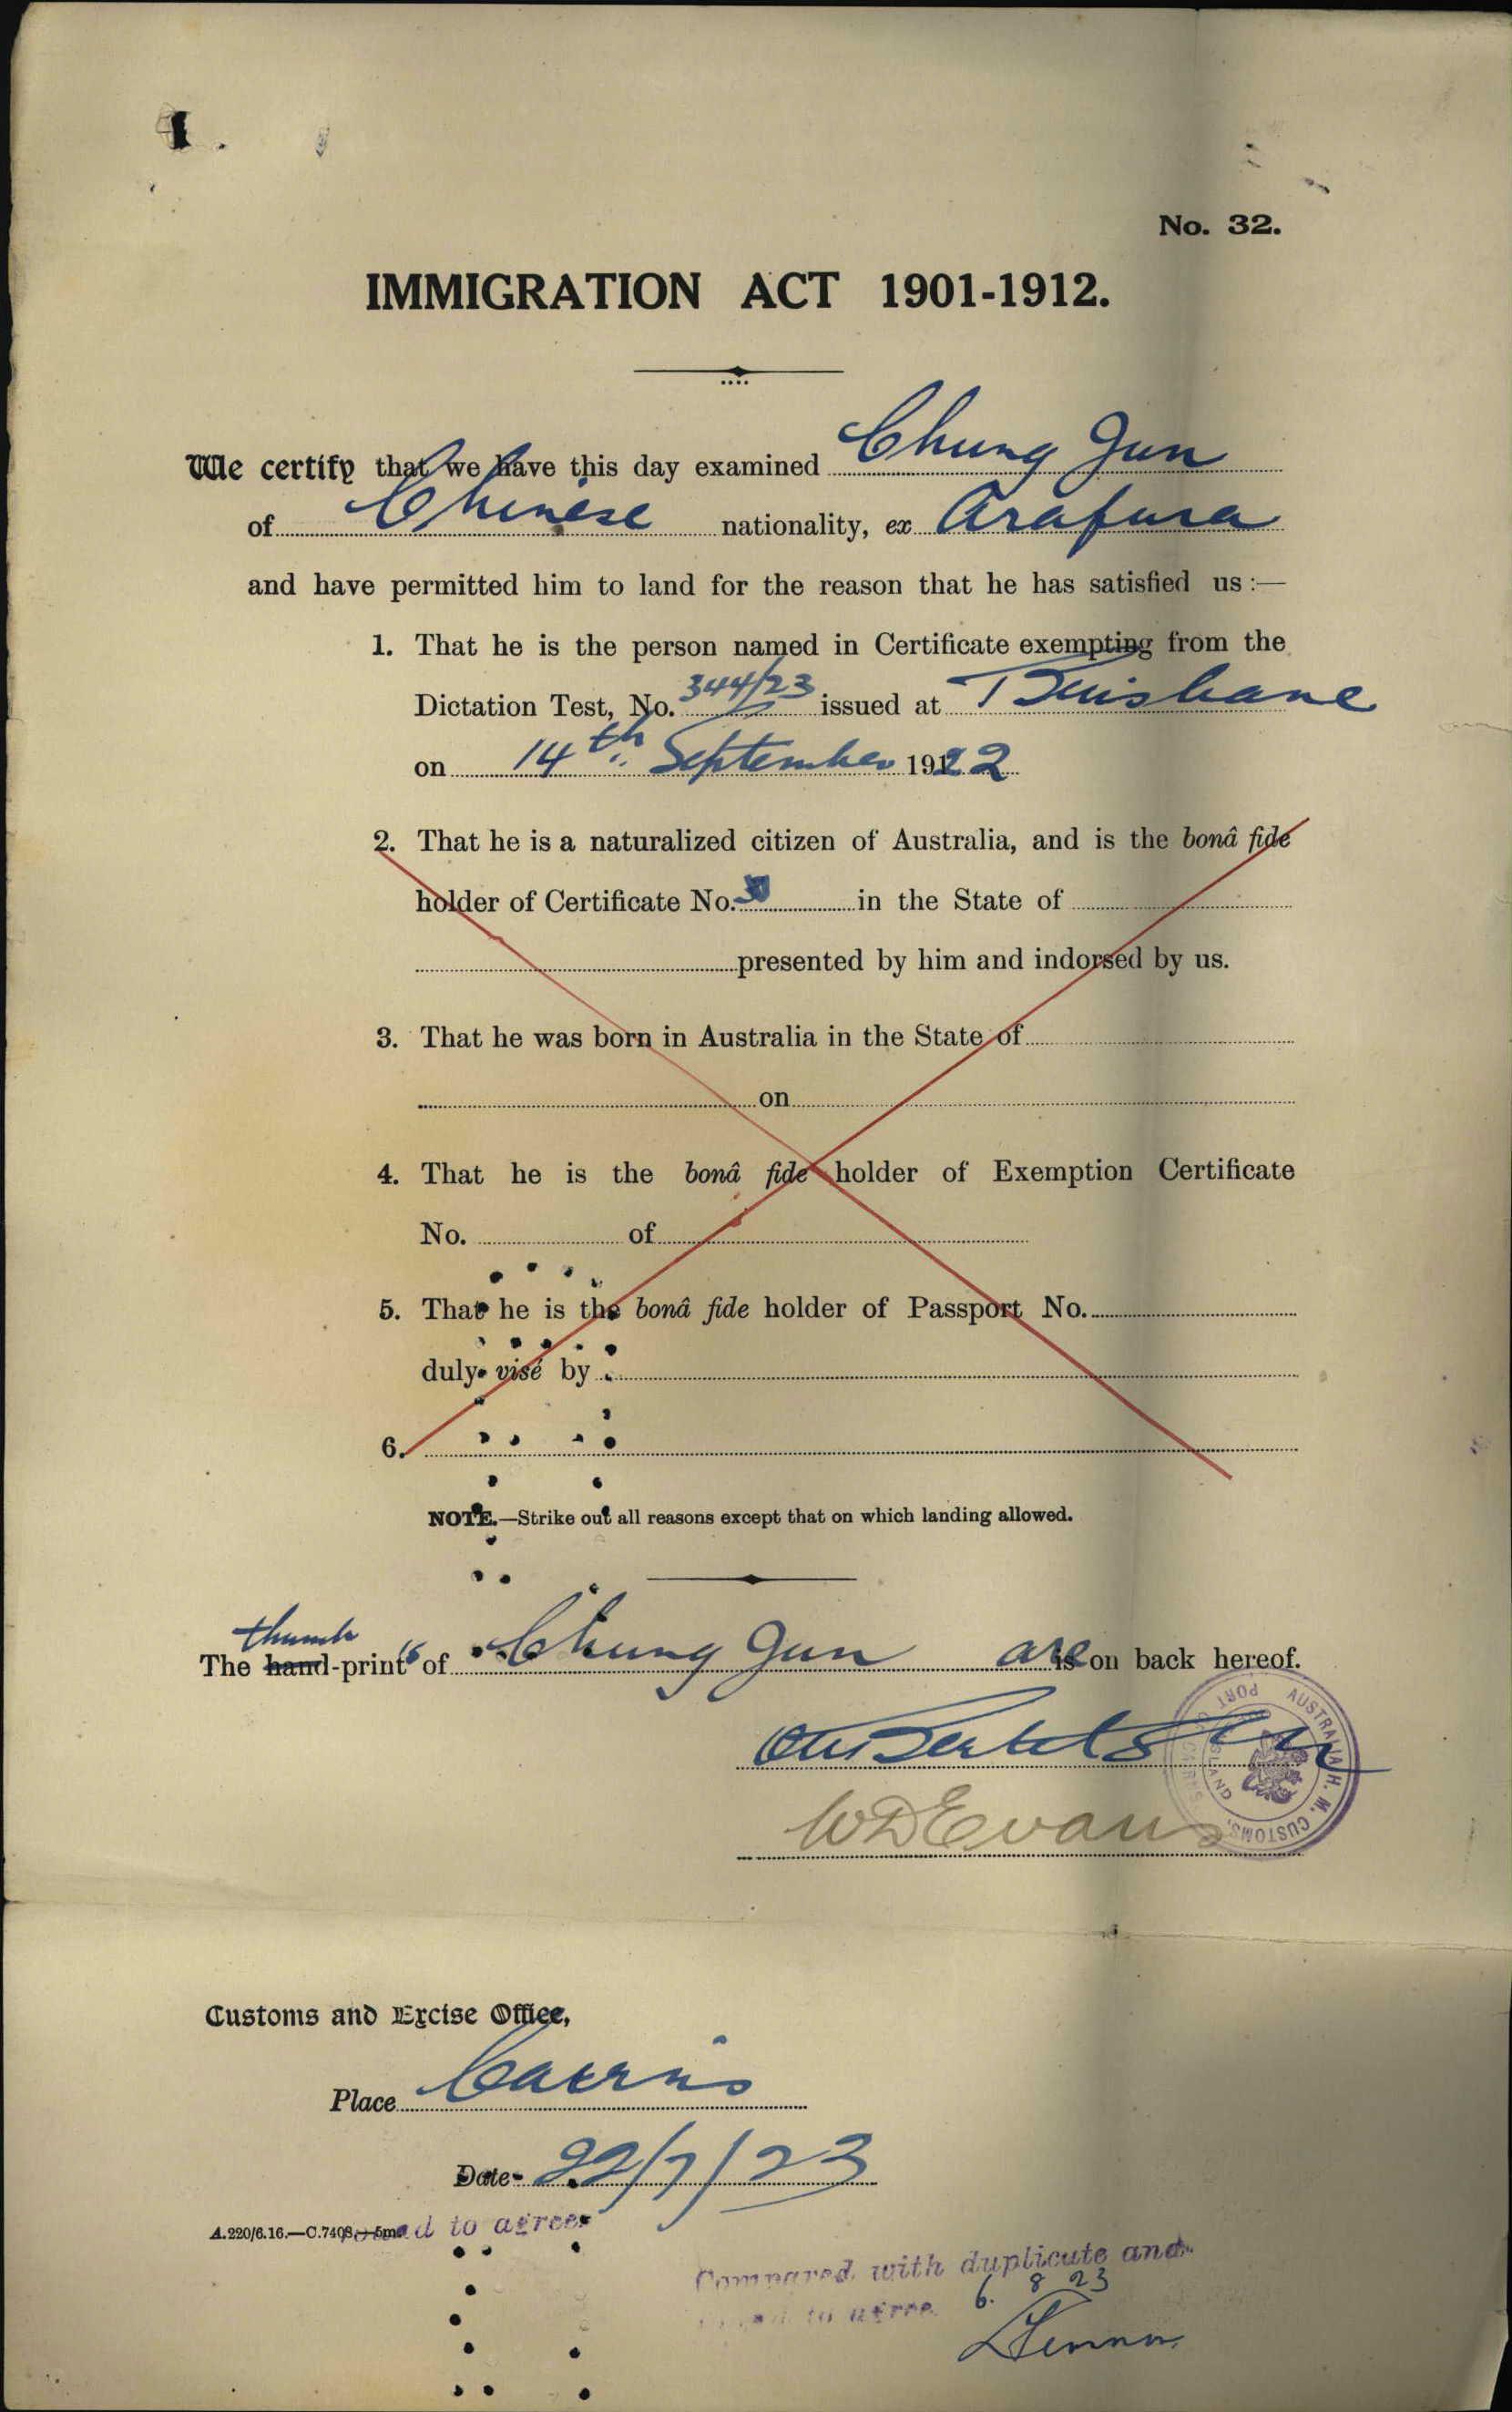 No. 32.
IMMIGRATION ACT 1901-1912.
We certify that we have this day examined Chung Gun
of Chinese nationality, ex Arafura
and have permitted him to land for the reason that he has satisfied us :—
1. That he is the person named in Certificate exempting from the
Dictation Test, No. 344/23 issued at Brisbane
on 14th September 1922
2. That he is a naturalized citizen of Australia, and is the bonâ fide
holder of Certificate No. in the State of
presented by him and indorsed by us.
3. That he was born in Australia in the State of
on
4. That he is the bonâ fide holder of Exemption Certificate
No. of
5. That he is the bonâ fide holder of Passport No.
duly visé by
6.
NOTE.—Strike out all reasons except that on which landing allowed.
thumb
The hand-prints of Chung Gun are is on back hereof.
WDEvans
AUSTRALIA H. M. CUSTOMS. PORT OF CAIRNS
Customs and Excise Office,
Place Cairns
Date 22/7/23
A.220/6.16.—C.7408.—5m. to agree
Compared with duplicate and
to agree. 6. 8 23